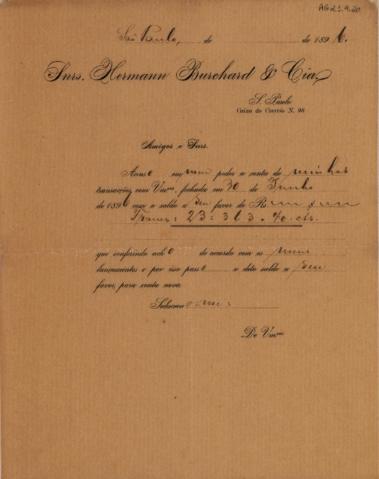 AG23.9.20
São Paulo, de de 1896.
Snrs. Hermann Burchard & Cia,
S. Paulo
Caixa do Correio N. 96
Amigos e Snrs.
Accuso em meu poder a conta de minhas
transacções com Vmces, fechada em 30 de Junho
de 1896 com o saldo a seu favor de
Francos: 23:363.40 cts.
que conferindo achO de accordo com os meus
lançamentos e por isso passO o dito saldo a seu
favor, para conta nova.
Saudamo
De Vmces